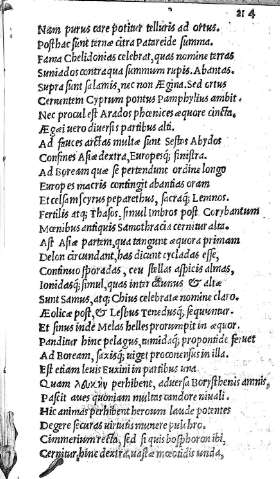 214
Nam purus care potitur telluris ad ortus.
Posthac sunt ternæ citra Patareide summa.
Fama Chelidonias celebrat, quas nomine terras
Suniados contra qua summum rupis. Abantas.
Supra sunt salamis, nec non Ægina. Sed ortus
Cernuntem Cyprum pontus Pamphylius ambit.
Nec procul est Arados phœnices æquore cincta.
Ægæi uero diuersis partibus alti.
Ad fauces arctas multæ sunt Sestos Abydos
Confines Asiæ dextra, Europesq; sinistra.
Ad Boream quæ se pertendunt ordine longo
Europes macris contingit abantias oram
Et celsam scyros peparethus, sacraq; Lemnos.
Fertilis atq; Thasos, simul Imbros post Corybantum
Mœnibus antiquis Samothracia cernitur alta.
Ast Asiæ partem, qua tangunt æquora primam
Delon circundant, has dicunt cycladas esse,
Continuo sporadas, ceu stellas aspicis almas,
Ionidasq; simul, quas inter Caunus & altæ
Sunt Samus, atq; Chius celebratæ nomine claro.
Æolicæ post, & Lesbus Tenedusq; sequuntur.
Et sinus inde Melas helles prorumpit in æquor.
Panditur hinc pelagus, tumidaq; propontide feruet
Ad Boream, saxisq; uiget proconensis in illa.
Est etiam leuis Euxini in partibus una
Quam λδυκην perhibent, aduersa Borysthenis amnis,
Pascit aues quoniam multas candore niuali.
Hic animas perhibent heroum laude potentes
Degere securas uirtutis munere pulchro.
Cimmerium recta, sed si quis bosphoron ibi,
Cernitur, hinc dextra, uastæ mœotidis unda,